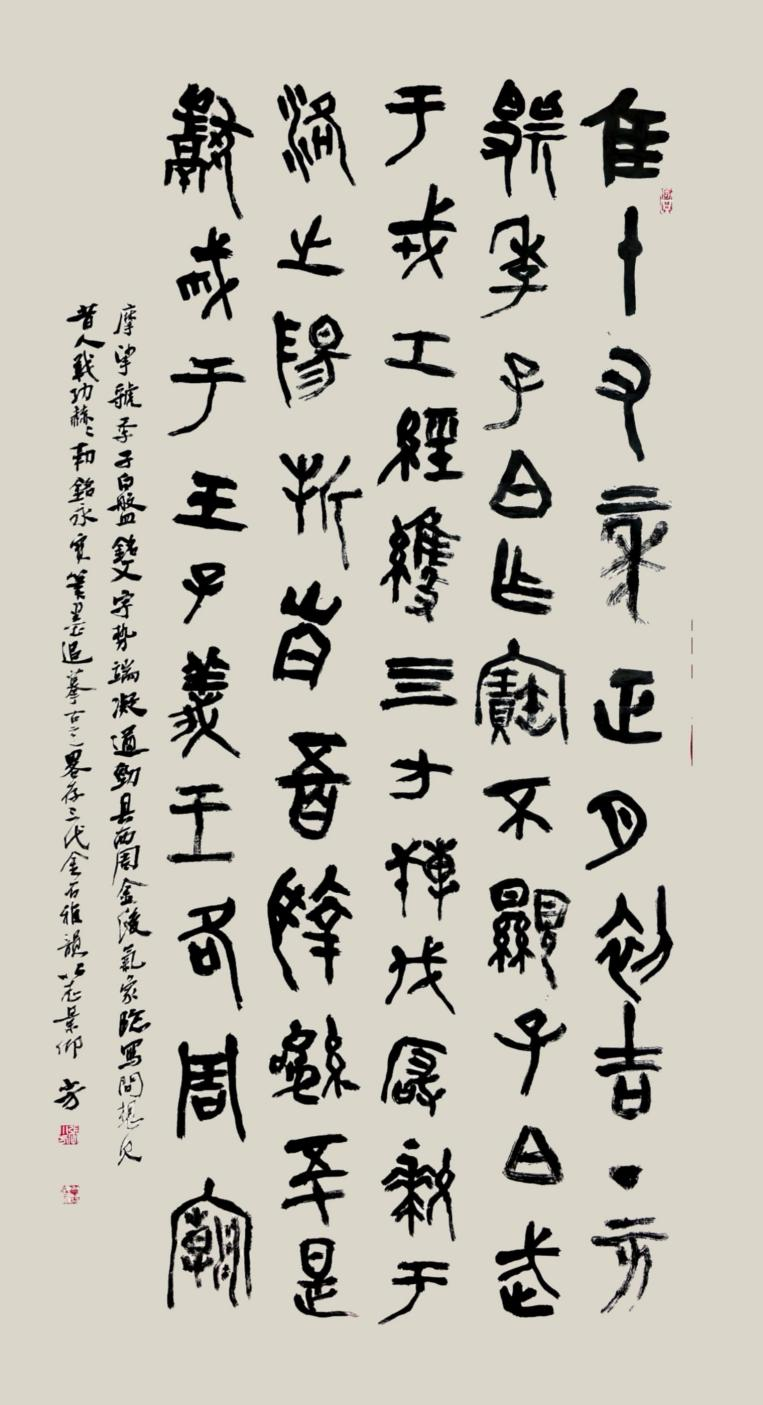 隹十又二年正月初吉丁亥
虢季子白乍寶不顯子白武
于戎工經維四方搏伐厰狁于
洛之陽折首五百執訊五十是
獻馘于王子義王各周廟
摩挲虢季子白盤銘文字勢端凝遒勁具西周金後氣象臨寫間想見
昔人戰功赫〻勒銘永寶筆墨追摹古之畧存三代金石雅韻以志景仰 芳